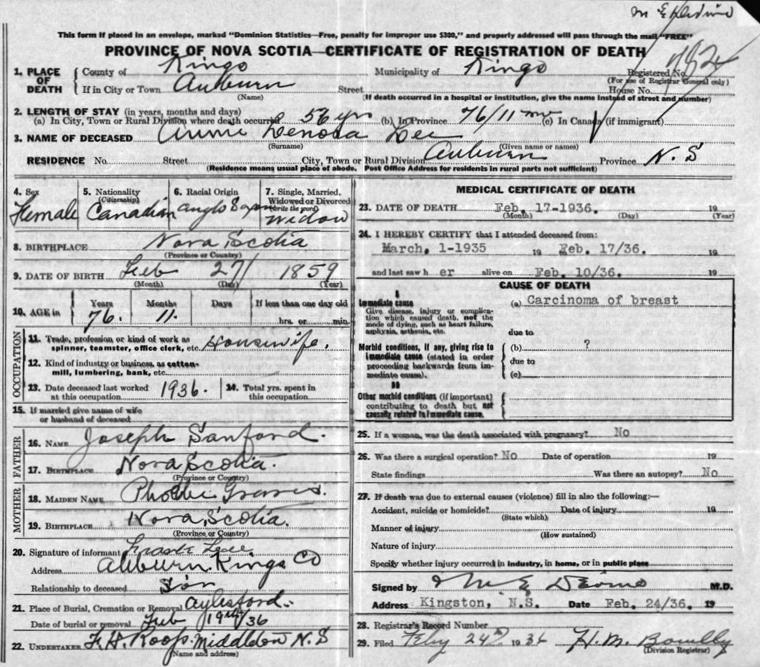 This form if placed in an envelope, marked "Dominion Statistics—Free, penalty for improper use $300," and properly addressed will pass through the mail "FREE"
PROVINCE OF NOVA SCOTIA—CERTIFICATE OF REGISTRATION OF DEATH
1. PLACE OF DEATH County of Kings Municipality of Kings Registered No.
(For use of Registrar General only)
If in City or Town Auburn Street House No.
(Name) (If death occurred in a hospital or institution, give the name instead of street and number)
2. LENGTH OF STAY (in years, months and days)
(a) In City, Town or Rural Division where death occurred 56 yrs (b) In Province 76/11 mo (c) In Canada (if immigrant)
3. NAME OF DECEASED Annie Lenora Lee
(Surname) (Given name or names)
RESIDENCE No. Street City, Town or Rural Division Auburn Province N. S
(Residence means usual place of abode. Post Office Address for residents in rural parts not sufficient)
4. Sex 5. Nationality (Citizenship) 6. Racial Origin 7. Single, Married, Widowed or Divorced (Write the word)
Female Canadian Anglo Saxon Widow
8. BIRTHPLACE Nova Scotia
(Province or Country)
9. DATE OF BIRTH Feb 27/ 1859
(Month) (Day) (Year)
10. AGE in Years Months Days If less than one day old
76. 11. hrs. or min.
OCCUPATION
11. Trade, profession or kind of work as spinner, teamster, office clerk, etc. Housewife.
12. Kind of industry or business, as cotton-mill, lumbering, bank, etc.
13. Date deceased last worked at this occupation 1936. 14. Total yrs. spent in this occupation
15. If married give name of wife or husband of deceased
FATHER
16. NAME Joseph Sanford.
17. BIRTHPLACE Nova Scotia.
(Province or Country)
MOTHER
18. MAIDEN NAME Phoebe Graves.
19. BIRTHPLACE Nova Scotia.
(Province or Country)
20. Signature of informant Lee
Address Auburn Kings Co
Relationship to deceased Son
21. Place of Burial, Cremation or Removal Aylesford.
Date of burial or removal Feb 19th/36
22. UNDERTAKER F. H. Roop. Middleton N. S
(Name and address)
MEDICAL CERTIFICATE OF DEATH
23. DATE OF DEATH Feb. 17-1936.
(Month) (Day) (Year)
24. I HEREBY CERTIFY that I attended deceased from:
March, 1-1935 19 Feb. 17/36. 19
and last saw h er alive on Feb. 10/36. 19
CAUSE OF DEATH
I
Immediate cause (a) Carcinoma of breast
Give disease, injury or complication which caused death, not the mode of dying, such as heart failure, asphyxia, asthenia, etc. due to
Morbid conditions, if any, giving rise to immediate cause (stated in order proceeding backwards from immediate cause). (b) ?
due to
(c)
II
Other morbid conditions (if important) contributing to death but not causally related to immediate cause.
25. If a woman, was the death associated with pregnancy? No
26. Was there a surgical operation? No Date of operation 19
State findings Was there an autopsy? No
27. If death was due to external causes (violence) fill in also the following:—
Accident, suicide or homicide? Date of injury 19
(State which)
Manner of injury
(How sustained)
Nature of injury
Specify whether injury occurred in industry, in home, or in public place
Signed by M.D.
Address Kingston, N.S. Date Feb. 24/36. 19
28. Registrar's Record Number
29. Filed Feby 24th 1936 H. M.
(Division Registrar)